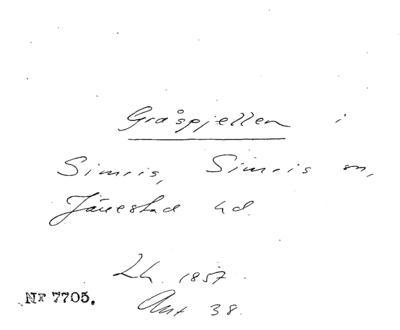 Gråspjellen i
Simris, Simris sn,
Järrestad hd.
Lh. 1857.
Ant 38.
Nr 7705.